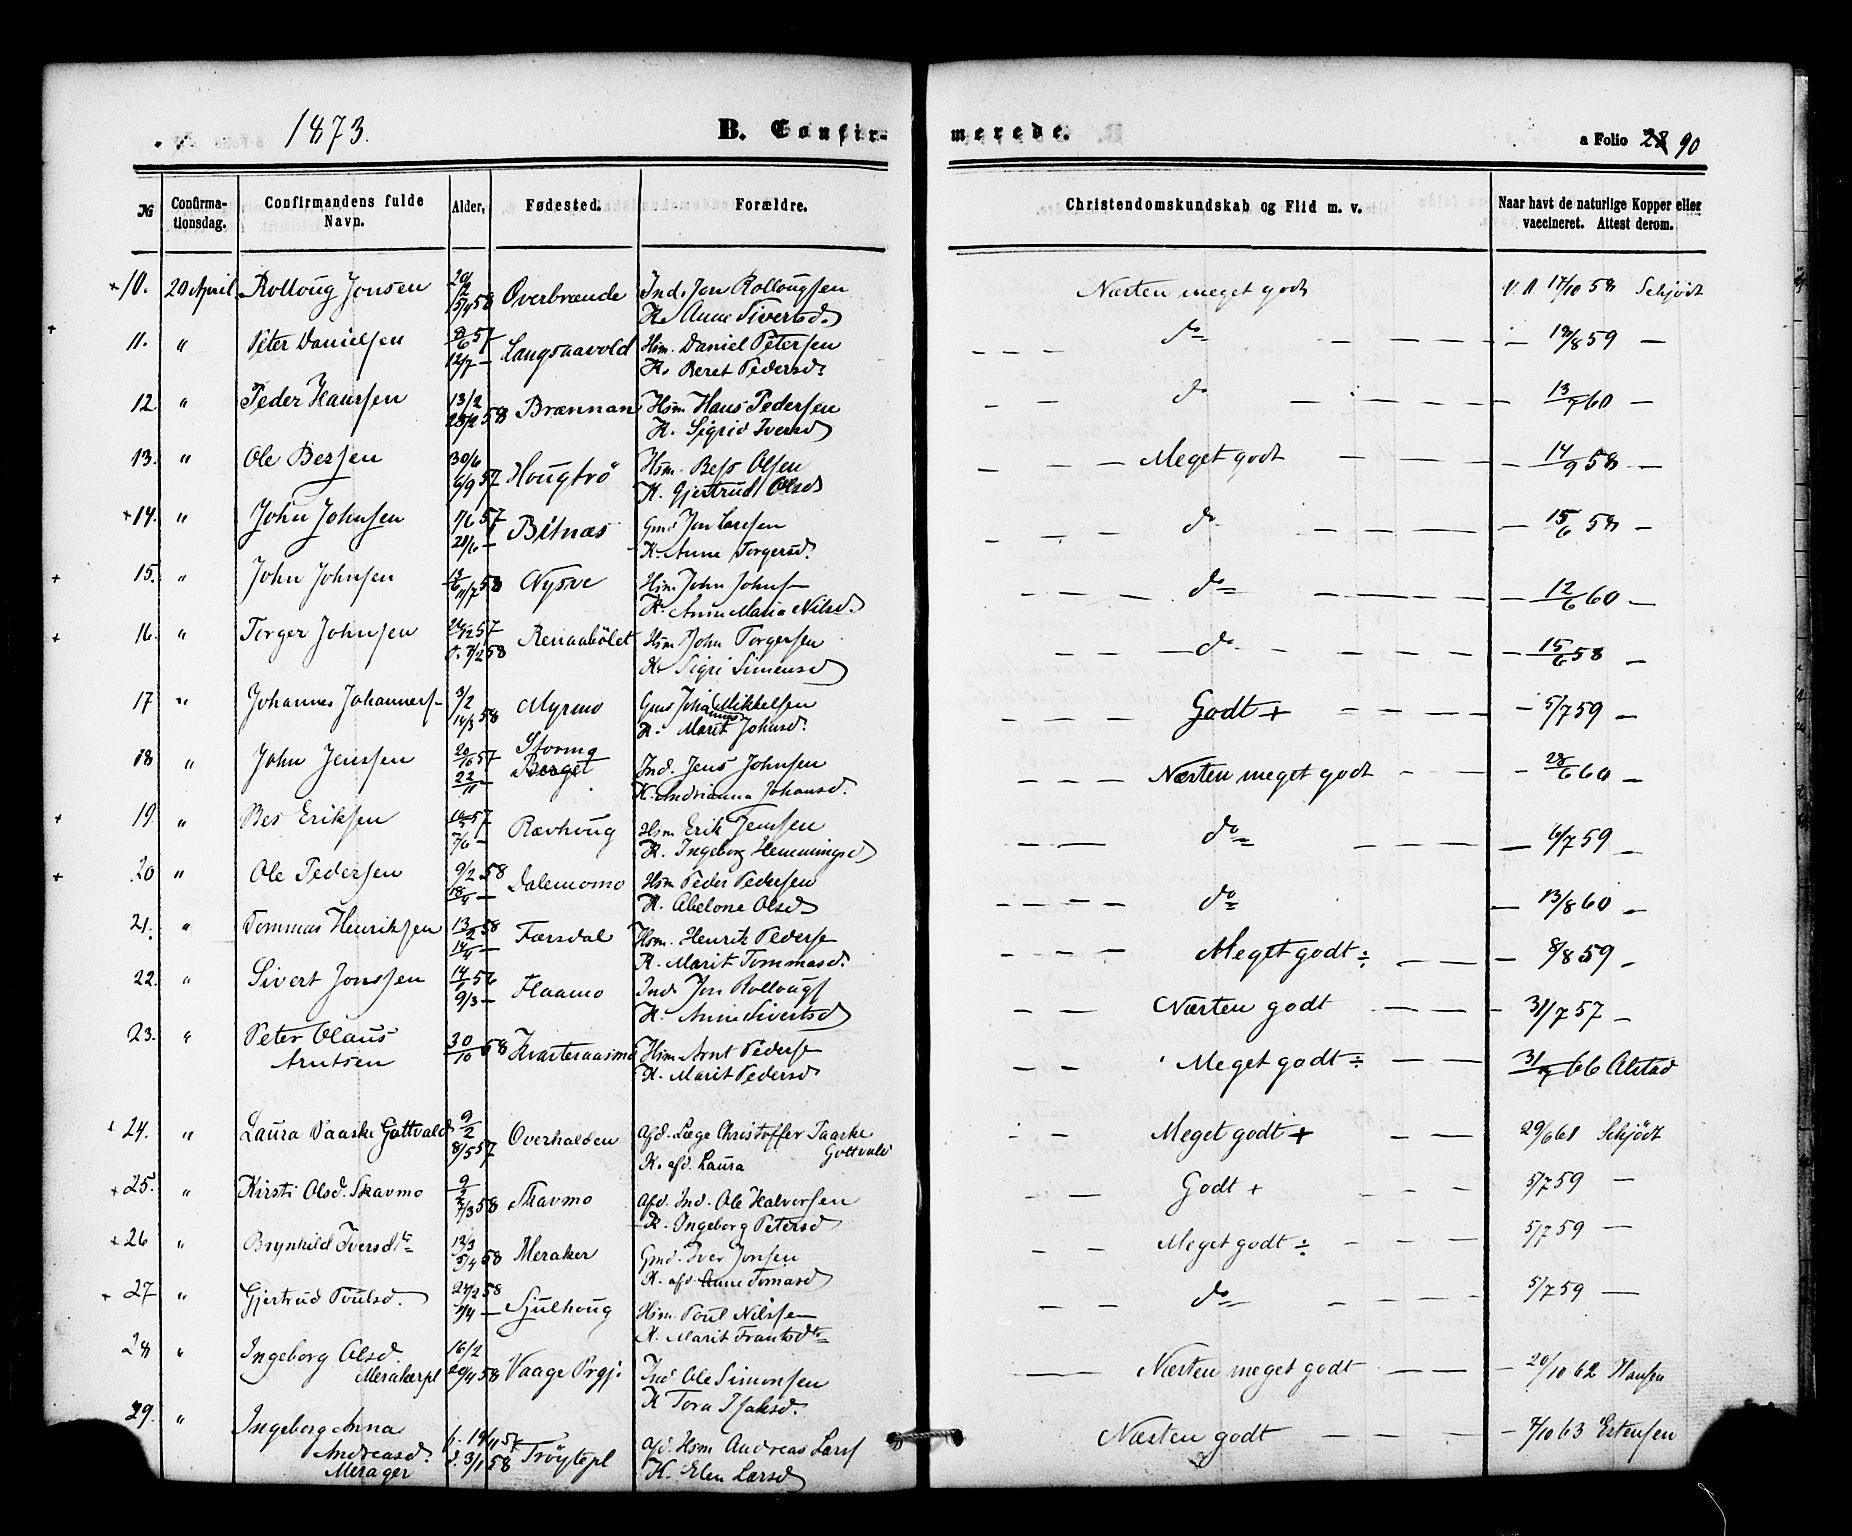 1873.
B. Confir-
merede.
a Folio 28 90
№
Confirma-
tionsdag.
Confirmandens fulde
Navn.
Alder,
Fødested.
Forældre.
Christendomskundskab og Flid m. v.
Naar havt de naturlige Kopper eller
vaccineret. Attest derom.
+10. 20 April Rolloug Jonsen 20/2 15/4 58 Overbrænde Ind. Jon Rollougsen Næsten meget godt V. A 17/10 58 Schjödt
K. Anne Sivertsd.
11. " Peter Danielsen 57 12/7 — Langsaavold Hsm. Daniel Petersen do 18/8 59 —
K. Beret Pedersd.
12. " Peder Hanssen 13/2 28/2 58 Brænnan Hsm Hans Pedersen do 13/7 60 —
K. Sigrid Iversd
13. " Ole Bersen 30/6 6/9 57 Hougtrö Hsm. Bess Olsen Meget godt 14/9 58 —
K. Gjertrud Olsd
+14. " John Johnsen 1/6 57 21/6 — Bitnæs Gmd Jon Larssen do 15/6 58 —
K. Anne Torgersd.
15. " John Johnsen 11/7 58 Nysve Hsm John Johns do 12/6 60 —
K. Anne Maria Nilsd.
16. " Torger Johnsen 26/12 57 7/2 58 Renaahölet Hsm John Torgersen do 15/6 58 —
K. Sigri Simensd
17 " Johannes Johannes 3/2 14/3 58 Myrmo Gmd Johannes Mikkelsen Godt + 5/7 59 —
K. Marit Johnsd.
18 " John Jenssen 20/10 57 22/11 — Storing Berget Ind. Jens Johnsen Næsten meget godt 28/6 60 —
K. Andrianna Johansd.
19 " Bes Eriksen 57 7/6 — Rævhoug Hsm Erik Jenssen do 6/7 59 —
K. Ingeborg Hemmingsd
20 " Ole Pedersen 9/2 58 18/4 — Dalemomo Hsm Peder Pedersen do 13/8 60 —
K. Abelone Olsd
21. " Tommas Henriksen 13/2 58 14/4 — Færsdal Hsm. Henrik Peders Meget godt ÷ 8/8 59 —
K. Marit Tommasd.
22. " Sivert Jonssen 14/1 56 9/3 — Flaamo Ind Jon Rollougs Næsten godt 31/7 57 —
K. Anne Sivertsd
23. " Peter Olaus 30/10 58 Kvarteraasmo Hsm Arnt Peders Meget godt ÷ 31/7 66 Alstad
Arntsen K. Marit Pedersd
+ 24. " Laura Paaske Gottvald 9/2 8/5 57 Overhalden Afd. Læge Christoffer Paaske Meget godt + 29/6 61 Schjödt
Gottvald
K. afd. Laura
+ 25. " Kirsti Olsd. Skavmo 9/2 7/3 58 Skavmo Afd. Ind. Ole Halvorsen Godt + 5/7 59 —
K. Ingeborg Petersd
+ 26 " Brynhild Iversdtr 13/3 5/4 58 Meraker Gmd. Iver Jonsen Meget godt ÷ 5/7 59 —
K. afd. Anne Tomasd
+ 27 " Gjertrud Poulsd. 24/2 58 1/4 — Sjulhoug Hsm. Poul Nilssen do 5/7 59 —
K. Marit Frantsdtr
28 " Ingeborg Olsd. 16/2 20/4 58 Vaage Prgj. Ind Ole Simonsen Næsten meget godt 20/10 62 Hansen
Merakerpl K Tora Isaksd.
29. " Ingeborg Anna f. 19/11 57 d. 3/1 58 Tröytepl Afd. Hsm Andreas Lars Næsten godt 7/10 63 Estensen
Andreasd. K. Elen Larsd
Merager